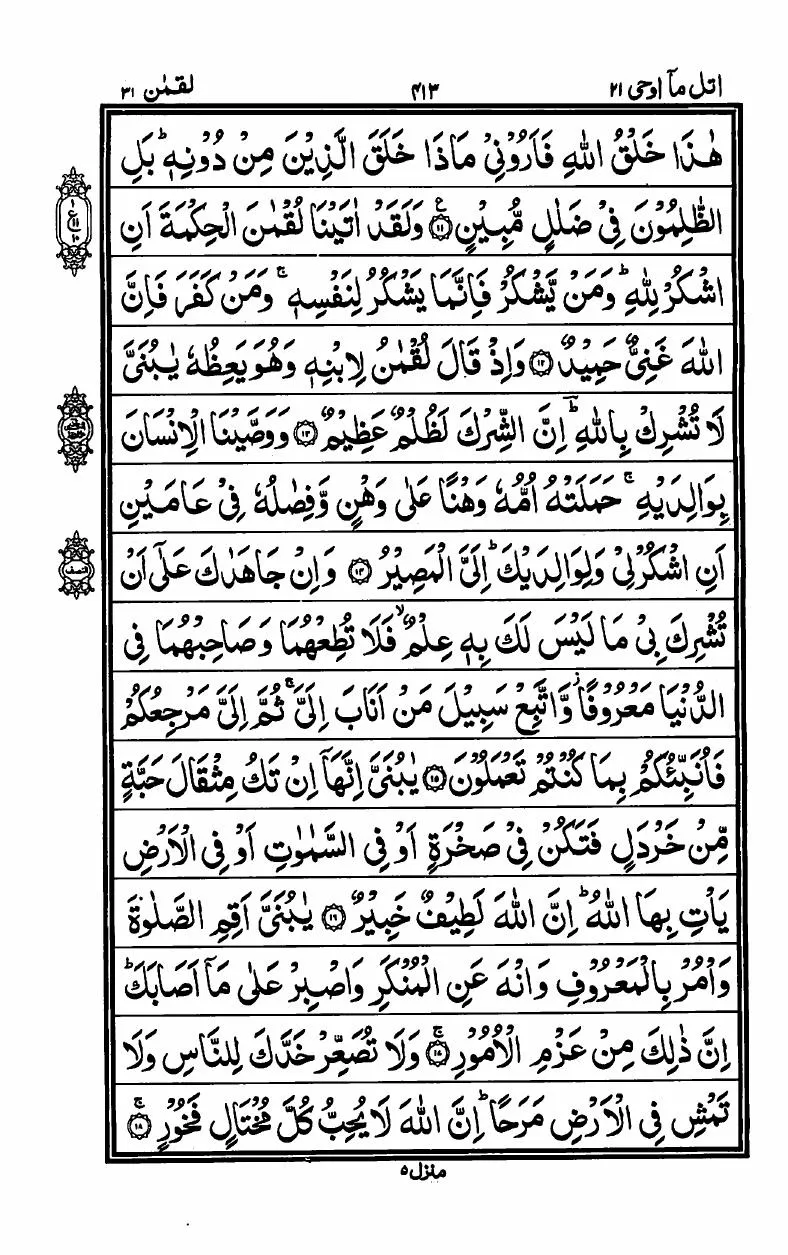 اتل مآ اوحی ۲۱ ۴۱۳ لقمٰن ۳۱
هٰذَا خَلْقُ اللّٰهِ فَاَرُوْنِیْ مَاذَا خَلَقَ الَّذِیْنَ مِنْ دُوْنِهٖ ؕ بَلِ
الظّٰلِمُوْنَ فِیْ ضَلٰلٍ مُّبِیْنٍ ۠﴿۱۱﴾ وَلَقَدْ اٰتَیْنَا لُقْمٰنَ الْحِكْمَةَ اَنِ
اشْكُرْ لِلّٰهِ ؕ وَمَنْ یَّشْكُرْ فَاِنَّمَا یَشْكُرُ لِنَفْسِهٖ ۚ وَمَنْ كَفَرَ فَاِنَّ
اللّٰهَ غَنِیٌّ حَمِیْدٌ ﴿۱۲﴾ وَاِذْ قَالَ لُقْمٰنُ لِابْنِهٖ وَهُوَ یَعِظُهٗ یٰبُنَیَّ
لَا تُشْرِكْ بِاللّٰهِ ؕ اِنَّ الشِّرْكَ لَظُلْمٌ عَظِیْمٌ ﴿۱۳﴾ وَوَصَّیْنَا الْاِنْسَانَ
بِوَالِدَیْهِ ۚ حَمَلَتْهُ اُمُّهٗ وَهْنًا عَلٰی وَهْنٍ وَّفِصٰلُهٗ فِیْ عَامَیْنِ
اَنِ اشْكُرْ لِیْ وَلِوَالِدَیْكَ ؕ اِلَیَّ الْمَصِیْرُ ﴿۱۴﴾ وَاِنْ جَاهَدٰكَ عَلٰۤی اَنْ
تُشْرِكَ بِیْ مَا لَیْسَ لَكَ بِهٖ عِلْمٌ ۙ فَلَا تُطِعْهُمَا وَصَاحِبْهُمَا فِی
الدُّنْیَا مَعْرُوْفًا ؗ وَّاتَّبِعْ سَبِیْلَ مَنْ اَنَابَ اِلَیَّ ۚ ثُمَّ اِلَیَّ مَرْجِعُكُمْ
فَاُنَبِّئُكُمْ بِمَا كُنْتُمْ تَعْمَلُوْنَ ﴿۱۵﴾ یٰبُنَیَّ اِنَّهَاۤ اِنْ تَكُ مِثْقَالَ حَبَّةٍ
مِّنْ خَرْدَلٍ فَتَكُنْ فِیْ صَخْرَةٍ اَوْ فِی السَّمٰوٰتِ اَوْ فِی الْاَرْضِ
یَاْتِ بِهَا اللّٰهُ ؕ اِنَّ اللّٰهَ لَطِیْفٌ خَبِیْرٌ ﴿۱۶﴾ یٰبُنَیَّ اَقِمِ الصَّلٰوةَ
وَاْمُرْ بِالْمَعْرُوْفِ وَانْهَ عَنِ الْمُنْكَرِ وَاصْبِرْ عَلٰی مَاۤ اَصَابَكَ ؕ
اِنَّ ذٰلِكَ مِنْ عَزْمِ الْاُمُوْرِ ۚ﴿۱۷﴾ وَلَا تُصَعِّرْ خَدَّكَ لِلنَّاسِ وَلَا
تَمْشِ فِی الْاَرْضِ مَرَحًا ؕ اِنَّ اللّٰهَ لَا یُحِبُّ كُلَّ مُخْتَالٍ فَخُوْرٍ ۚ﴿۱۸﴾
ع
النصف
منزل ۵